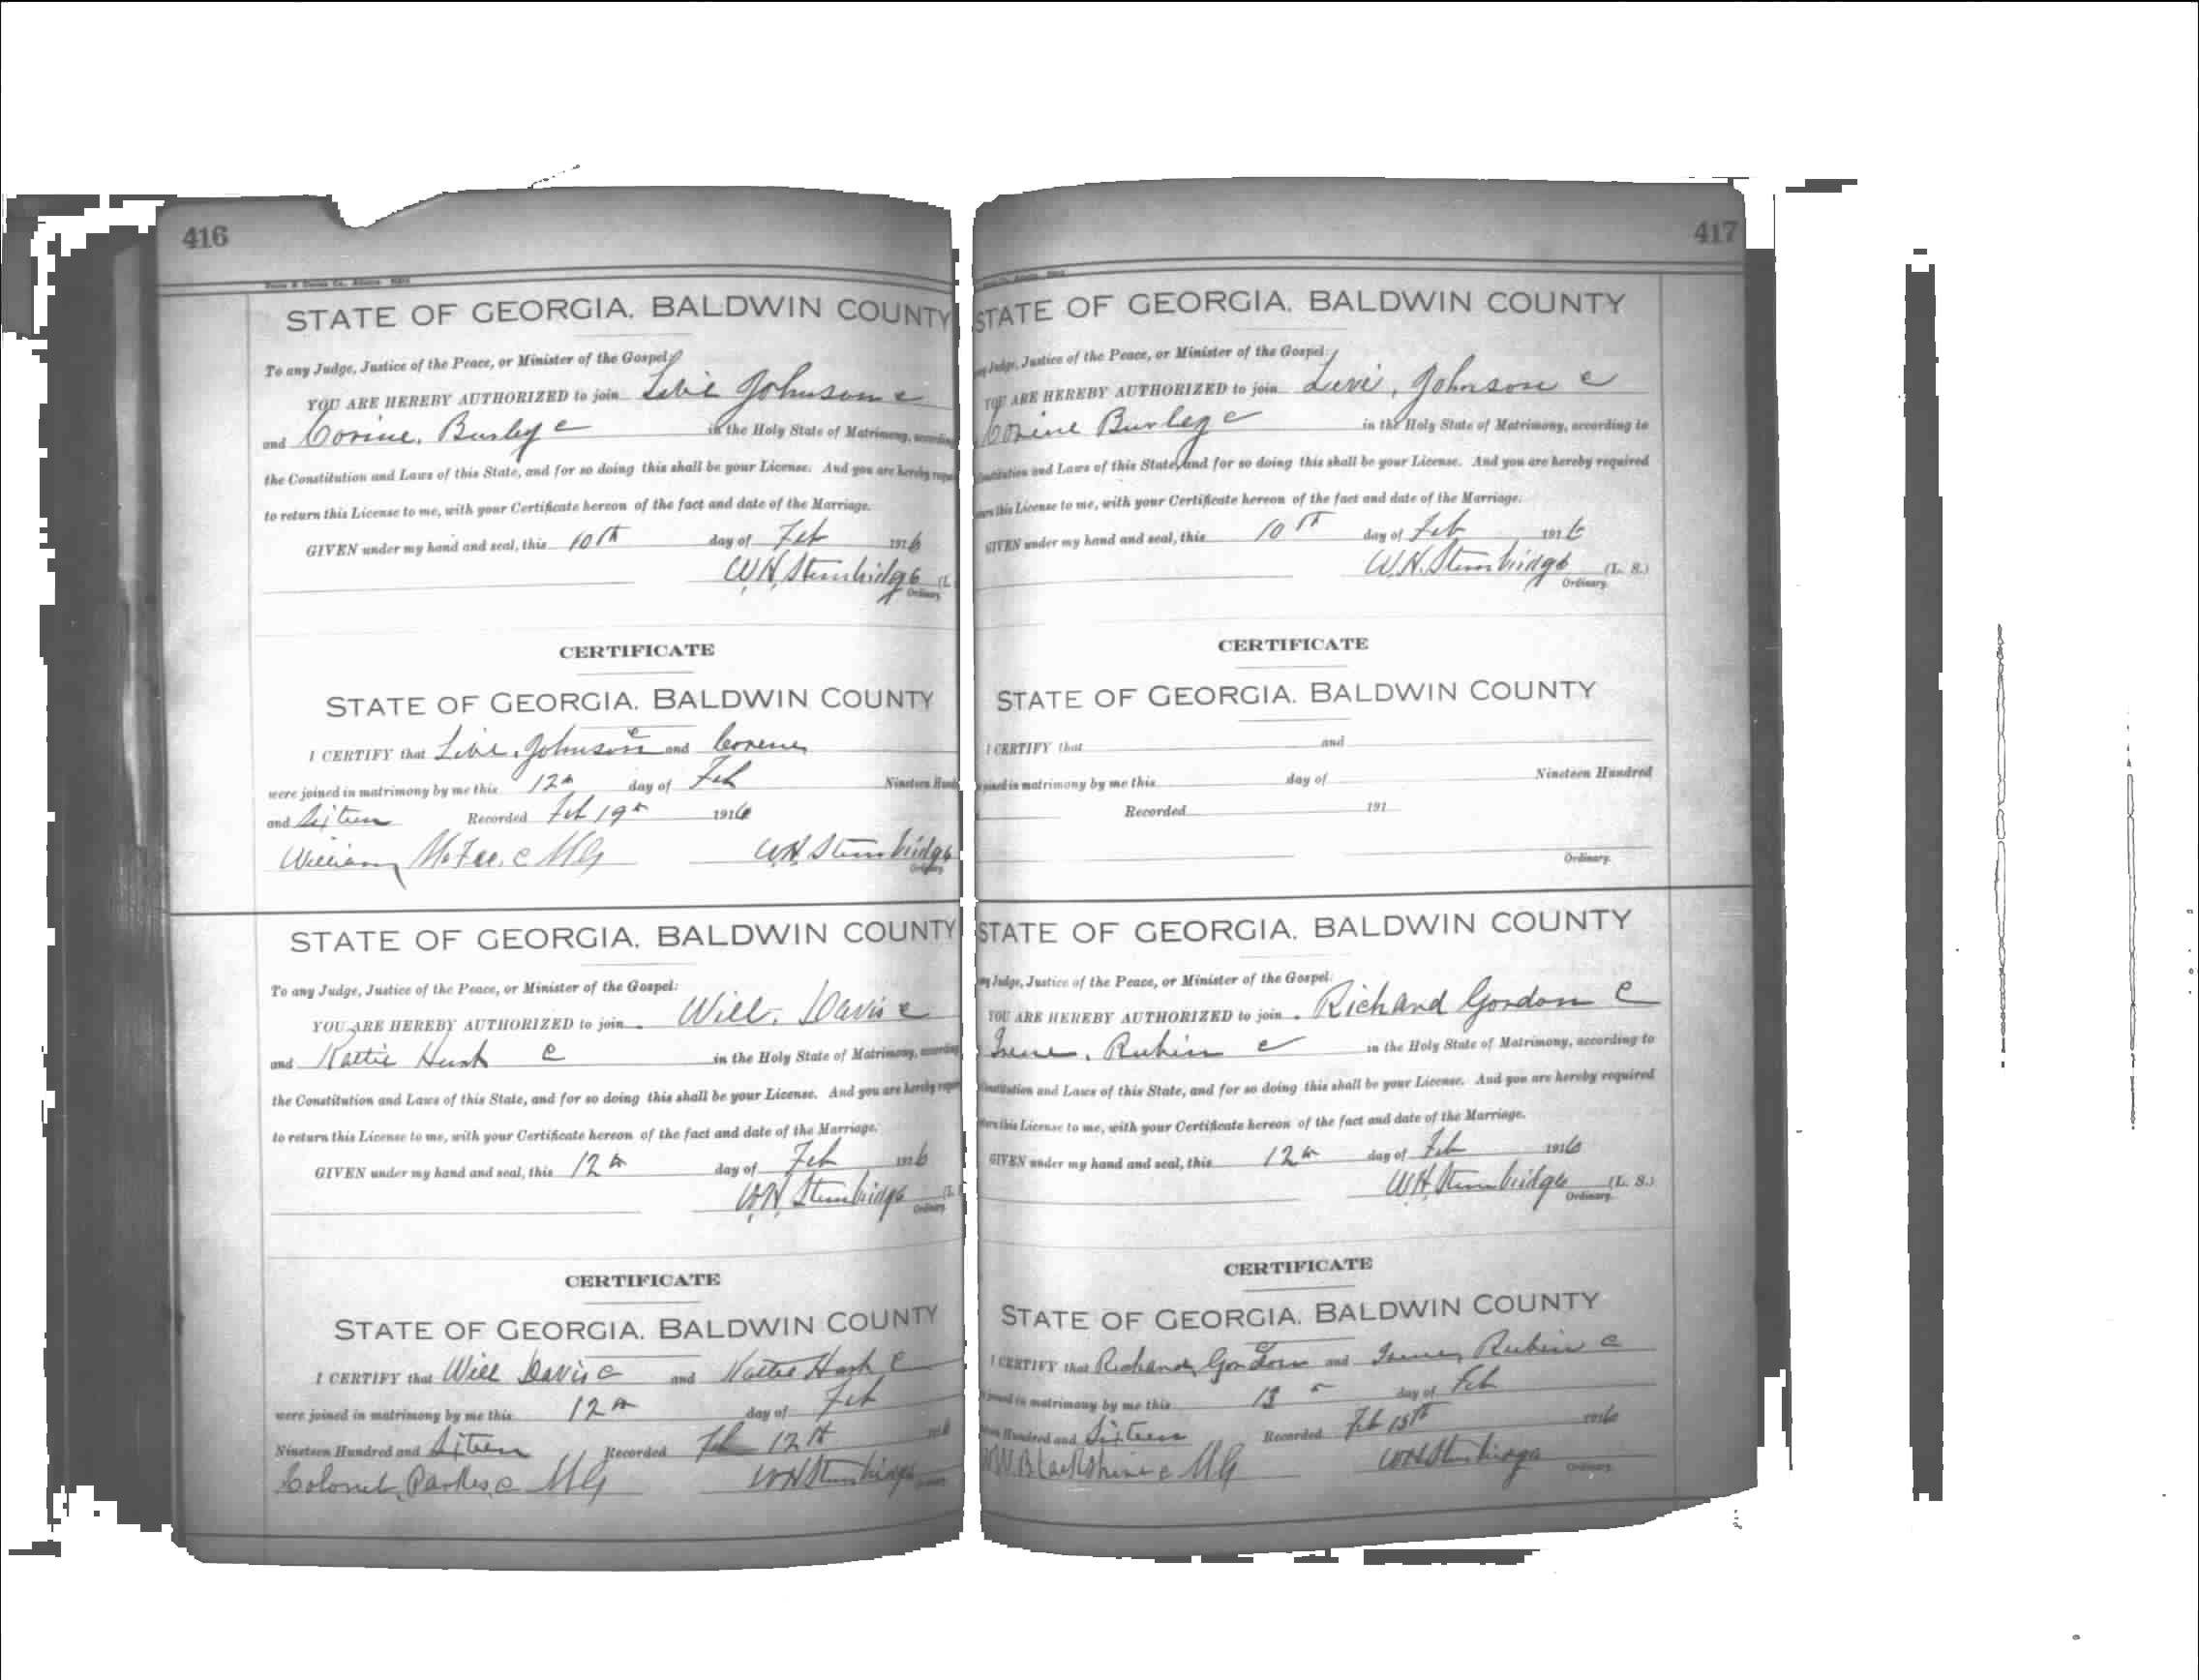 416
STATE OF GEORGIA, BALDWIN COUNTY
To any Judge, Justice of the Peace, or Minister of the Gospel:
YOU ARE HEREBY AUTHORIZED to join Johnson c
and Corine, Burley c in the Holy State of Matrimony, according
the Constitution and Laws of this State, and for so doing this shall be your License. And you are hereby
to return this License to me, with your Certificate hereon of the fact and date of the Marriage.
GIVEN under my hand and seal, this 10th day of Feb 1916
W.H. Stembridge (L.
Ordinary.
CERTIFICATE
STATE OF GEORGIA, BALDWIN COUNTY
I CERTIFY that Johnson c and
were joined in matrimony by me this 12th day of Feb Nineteen
and Sixteen Recorded Feb 19th 1916
William McFee. c MG WH Stembridge
Ordinary.
STATE OF GEORGIA, BALDWIN COUNTY
To any Judge, Justice of the Peace, or Minister of the Gospel:
YOU ARE HEREBY AUTHORIZED to join Will. Davis c
and c in the Holy State of Matrimony, according
the Constitution and Laws of this State, and for so doing this shall be your License. And you are hereby
to return this License to me, with your Certificate hereon of the fact and date of the Marriage.
GIVEN under my hand and seal, this 12th day of Feb 1916
W.H. Stembridge (L.
Ordinary.
CERTIFICATE
STATE OF GEORGIA, BALDWIN COUNTY
I CERTIFY that Will Davis c and c
were joined in matrimony by me this 12th day of Feb
Nineteen Hundred and Sixteen Recorded Feb 12th 1916
Colonel, Parkes c MG WH Stembridge
417
STATE OF GEORGIA, BALDWIN COUNTY
Judge, Justice of the Peace, or Minister of the Gospel:
YOU ARE HEREBY AUTHORIZED to join Levi, Johnson c
Corine Burley c in the Holy State of Matrimony, according to
and Laws of this State, and for so doing this shall be your License. And you are hereby required
this License to me, with your Certificate hereon of the fact and date of the Marriage.
GIVEN under my hand and seal, this 10th day of Feb 1916
W.H. Stembridge (L. S.)
Ordinary.
CERTIFICATE
STATE OF GEORGIA, BALDWIN COUNTY
I CERTIFY that and
joined in matrimony by me this day of Nineteen Hundred
Recorded 191
Ordinary.
STATE OF GEORGIA, BALDWIN COUNTY
Judge, Justice of the Peace, or Minister of the Gospel:
YOU ARE HEREBY AUTHORIZED to join Richard Gordon c
Irene, Rubin c in the Holy State of Matrimony, according to
and Laws of this State, and for so doing this shall be your License. And you are hereby required
this License to me, with your Certificate hereon of the fact and date of the Marriage.
GIVEN under my hand and seal, this 12th day of Feb 1916
W.H. Stembridge (L. S.)
Ordinary.
CERTIFICATE
STATE OF GEORGIA, BALDWIN COUNTY
I CERTIFY that Richard, Gordon c and Irene, Rubin c
joined in matrimony by me this 13th day of Feb
Hundred and Sixteen Recorded Feb 15th 1916
Blackshire c MG WH Stembridge
Ordinary.